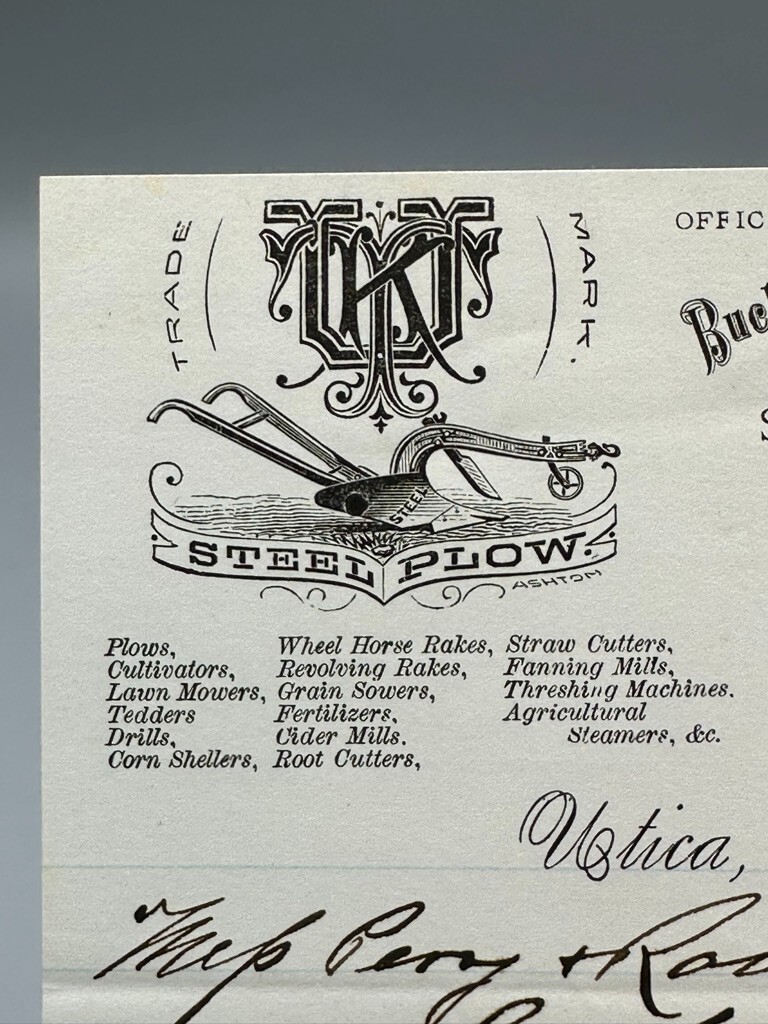 TRADE MARK.
OFFIC
Buc
STEEL
STEEL PLOW.
ASHTOM
Plows,
Cultivators,
Lawn Mowers,
Tedders
Drills,
Corn Shellers,
Wheel Horse Rakes,
Revolving Rakes,
Grain Sowers,
Fertilizers,
Cider Mills.
Root Cutters,
Straw Cutters,
Fanning Mills,
Threshing Machines.
Agricultural
Steamers, &c.
Utica,
Mess Perry &